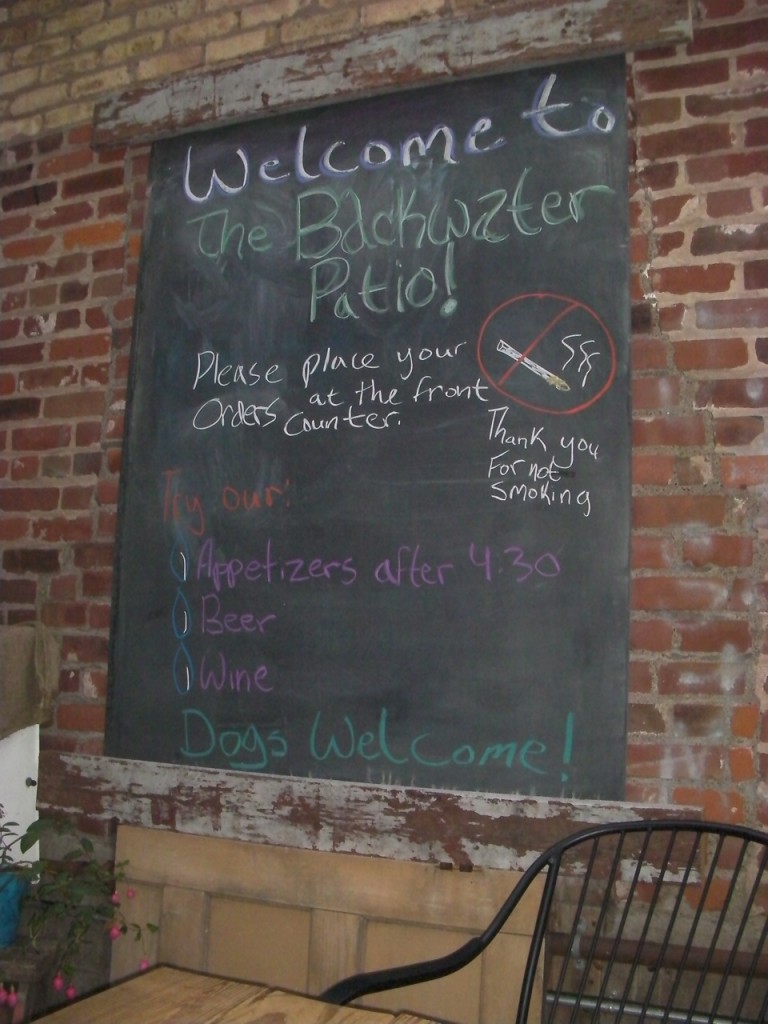 Welcome to
The Backwater
Patio!
Please place your
Orders at the front
Counter.
Thank you
For not
smoking
Try our:
Appetizers after 4.30
Beer
Wine
Dogs Welcome!